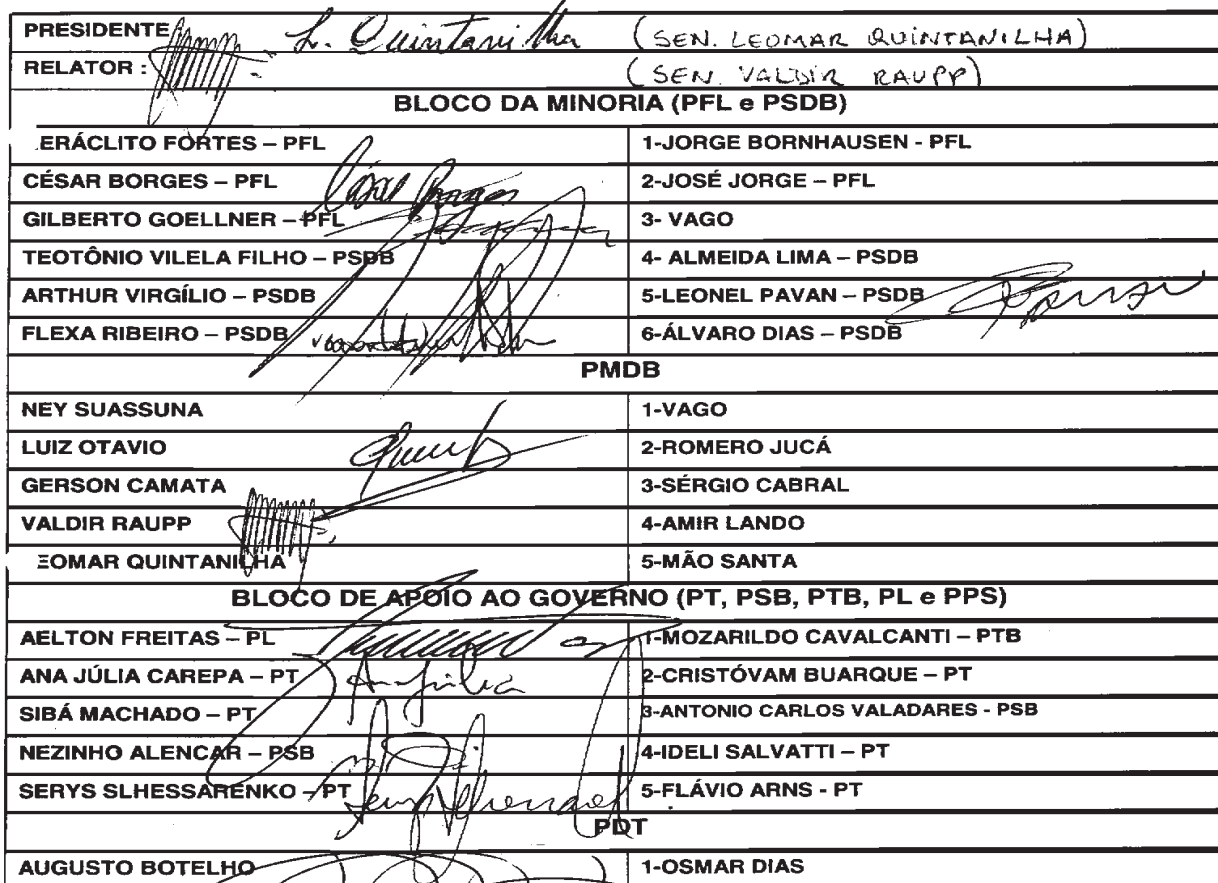 PRESIDENTE: L. Quintanilha (SEN. LEOMAR QUINTANILHA)
RELATOR : (SEN. VALDIR RAUPP)
BLOCO DA MINORIA (PFL e PSDB)
ERÁCLITO FORTES – PFL 1-JORGE BORNHAUSEN - PFL
CÉSAR BORGES – PFL César Borges 2-JOSÉ JORGE – PFL
GILBERTO GOELLNER – PFL 3- VAGO
TEOTÔNIO VILELA FILHO – PSDB 4- ALMEIDA LIMA – PSDB
ARTHUR VIRGÍLIO – PSDB 5-LEONEL PAVAN – PSDB
FLEXA RIBEIRO – PSDB 6-ÁLVARO DIAS – PSDB
PMDB
NEY SUASSUNA 1-VAGO
LUIZ OTAVIO 2-ROMERO JUCÁ
GERSON CAMATA 3-SÉRGIO CABRAL
VALDIR RAUPP 4-AMIR LANDO
EOMAR QUINTANILHA 5-MÃO SANTA
BLOCO DE APOIO AO GOVERNO (PT, PSB, PTB, PL e PPS)
AELTON FREITAS – PL 1-MOZARILDO CAVALCANTI – PTB
ANA JÚLIA CAREPA – PT Ana Júlia 2-CRISTÓVAM BUARQUE – PT
SIBÁ MACHADO – PT 3-ANTONIO CARLOS VALADARES - PSB
NEZINHO ALENCAR – PSB 4-IDELI SALVATTI – PT
SERYS SLHESSARENKO – PT 5-FLÁVIO ARNS - PT
PDT
AUGUSTO BOTELHO 1-OSMAR DIAS